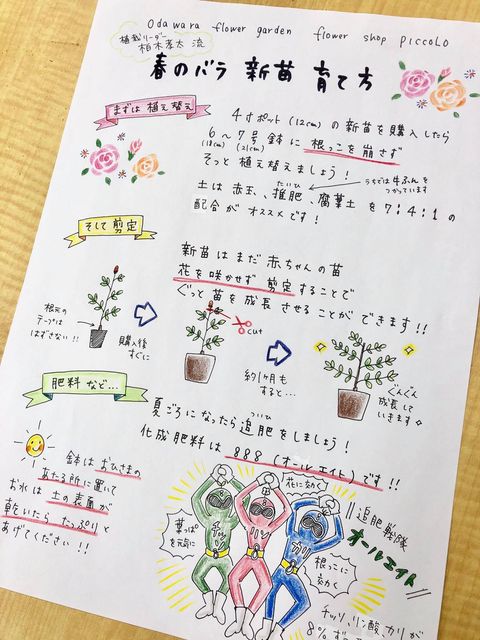 Odawara flower garden flower shop PICCOLO
植栽リーダー
柏木孝太 流
春のバラ 新苗 育て方
まずは 植え替え
4寸ポット(12cm)の新苗を購入したら
6〜7号鉢に 根っこを崩さず
(18cm) (21cm)
そっと 植え替えましょう!
たいひ
うちでは牛ふんを
つかっています
土は 赤玉、堆肥、腐葉土 を 7:4:1 の
配合が オススメです!
そして 剪定
新苗は まだ 赤ちゃんの苗
花を咲かせず 剪定することで
ぐっと 苗を 成長 させることが できます!!
根元の
テープは
はずさない!!
購入後
すぐに
cut
約1ヶ月も
すると…
ぐんぐん
成長して
いきます
肥料 など…
夏ごろになったら 追肥を しましょう!
ついひ
化成肥料は 888 (オールエイト) です!!
鉢は おひさまの
あたる所に置いて
お水は 土の表面が
乾いたら たっぷりと
あげてください!!
花に効く
葉っぱ
を元気に
チッソ
リン
カリ
根っこに
効く
追肥戦隊
オールエイト
チッソ、リン酸、カリが